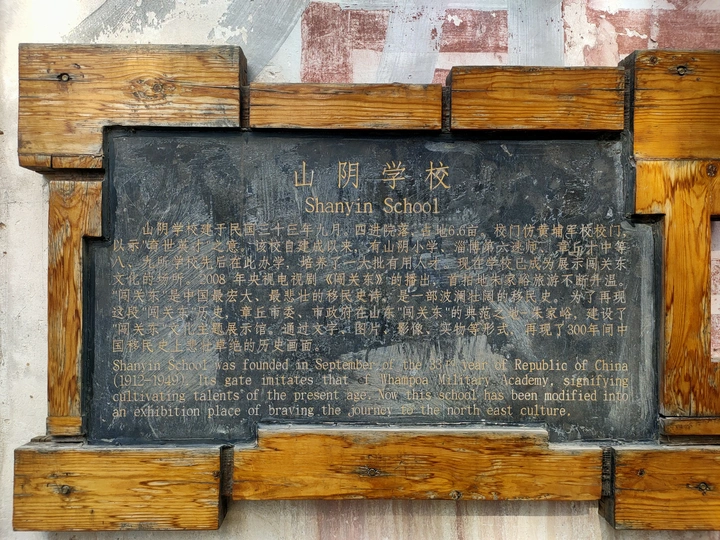 山阴学校
Shanyin School
山阴学校建于民国三十三年九月，四进院落，占地6.6亩。校门仿黄埔军校校门，
以示"命世英才"之意。该校自建成以来，有山阴小学、淄博第六速师、章丘十中等
八、九所学校先后在此办学，培养了一大批有用人才。现在学校已成为展示闯关东
文化的场所。2008 年央视电视剧《闯关东》的播出，首拍地朱家峪旅游不断升温。
"闯关东"是中国最宏大、最悲壮的移民史诗，是一部波澜壮阔的移民史。为了再现
这段"闯关东"历史，章丘市委、市政府在山东"闯关东"的典范之地-朱家峪，建设了
"闯关东"文化主题展示馆。通过文字、图片、影像、实物等形式，再现了300年间中
国移民史上悲壮卓绝的历史画面。
Shanyin School was founded in September of the 33rd year of Republic of China
(1912-1949). Its gate imitates that of Whampoa Military Academy, signifying
cultivating talents of the present age. Now this school has been modified into
an exhibition place of braving the journey to the north east culture.